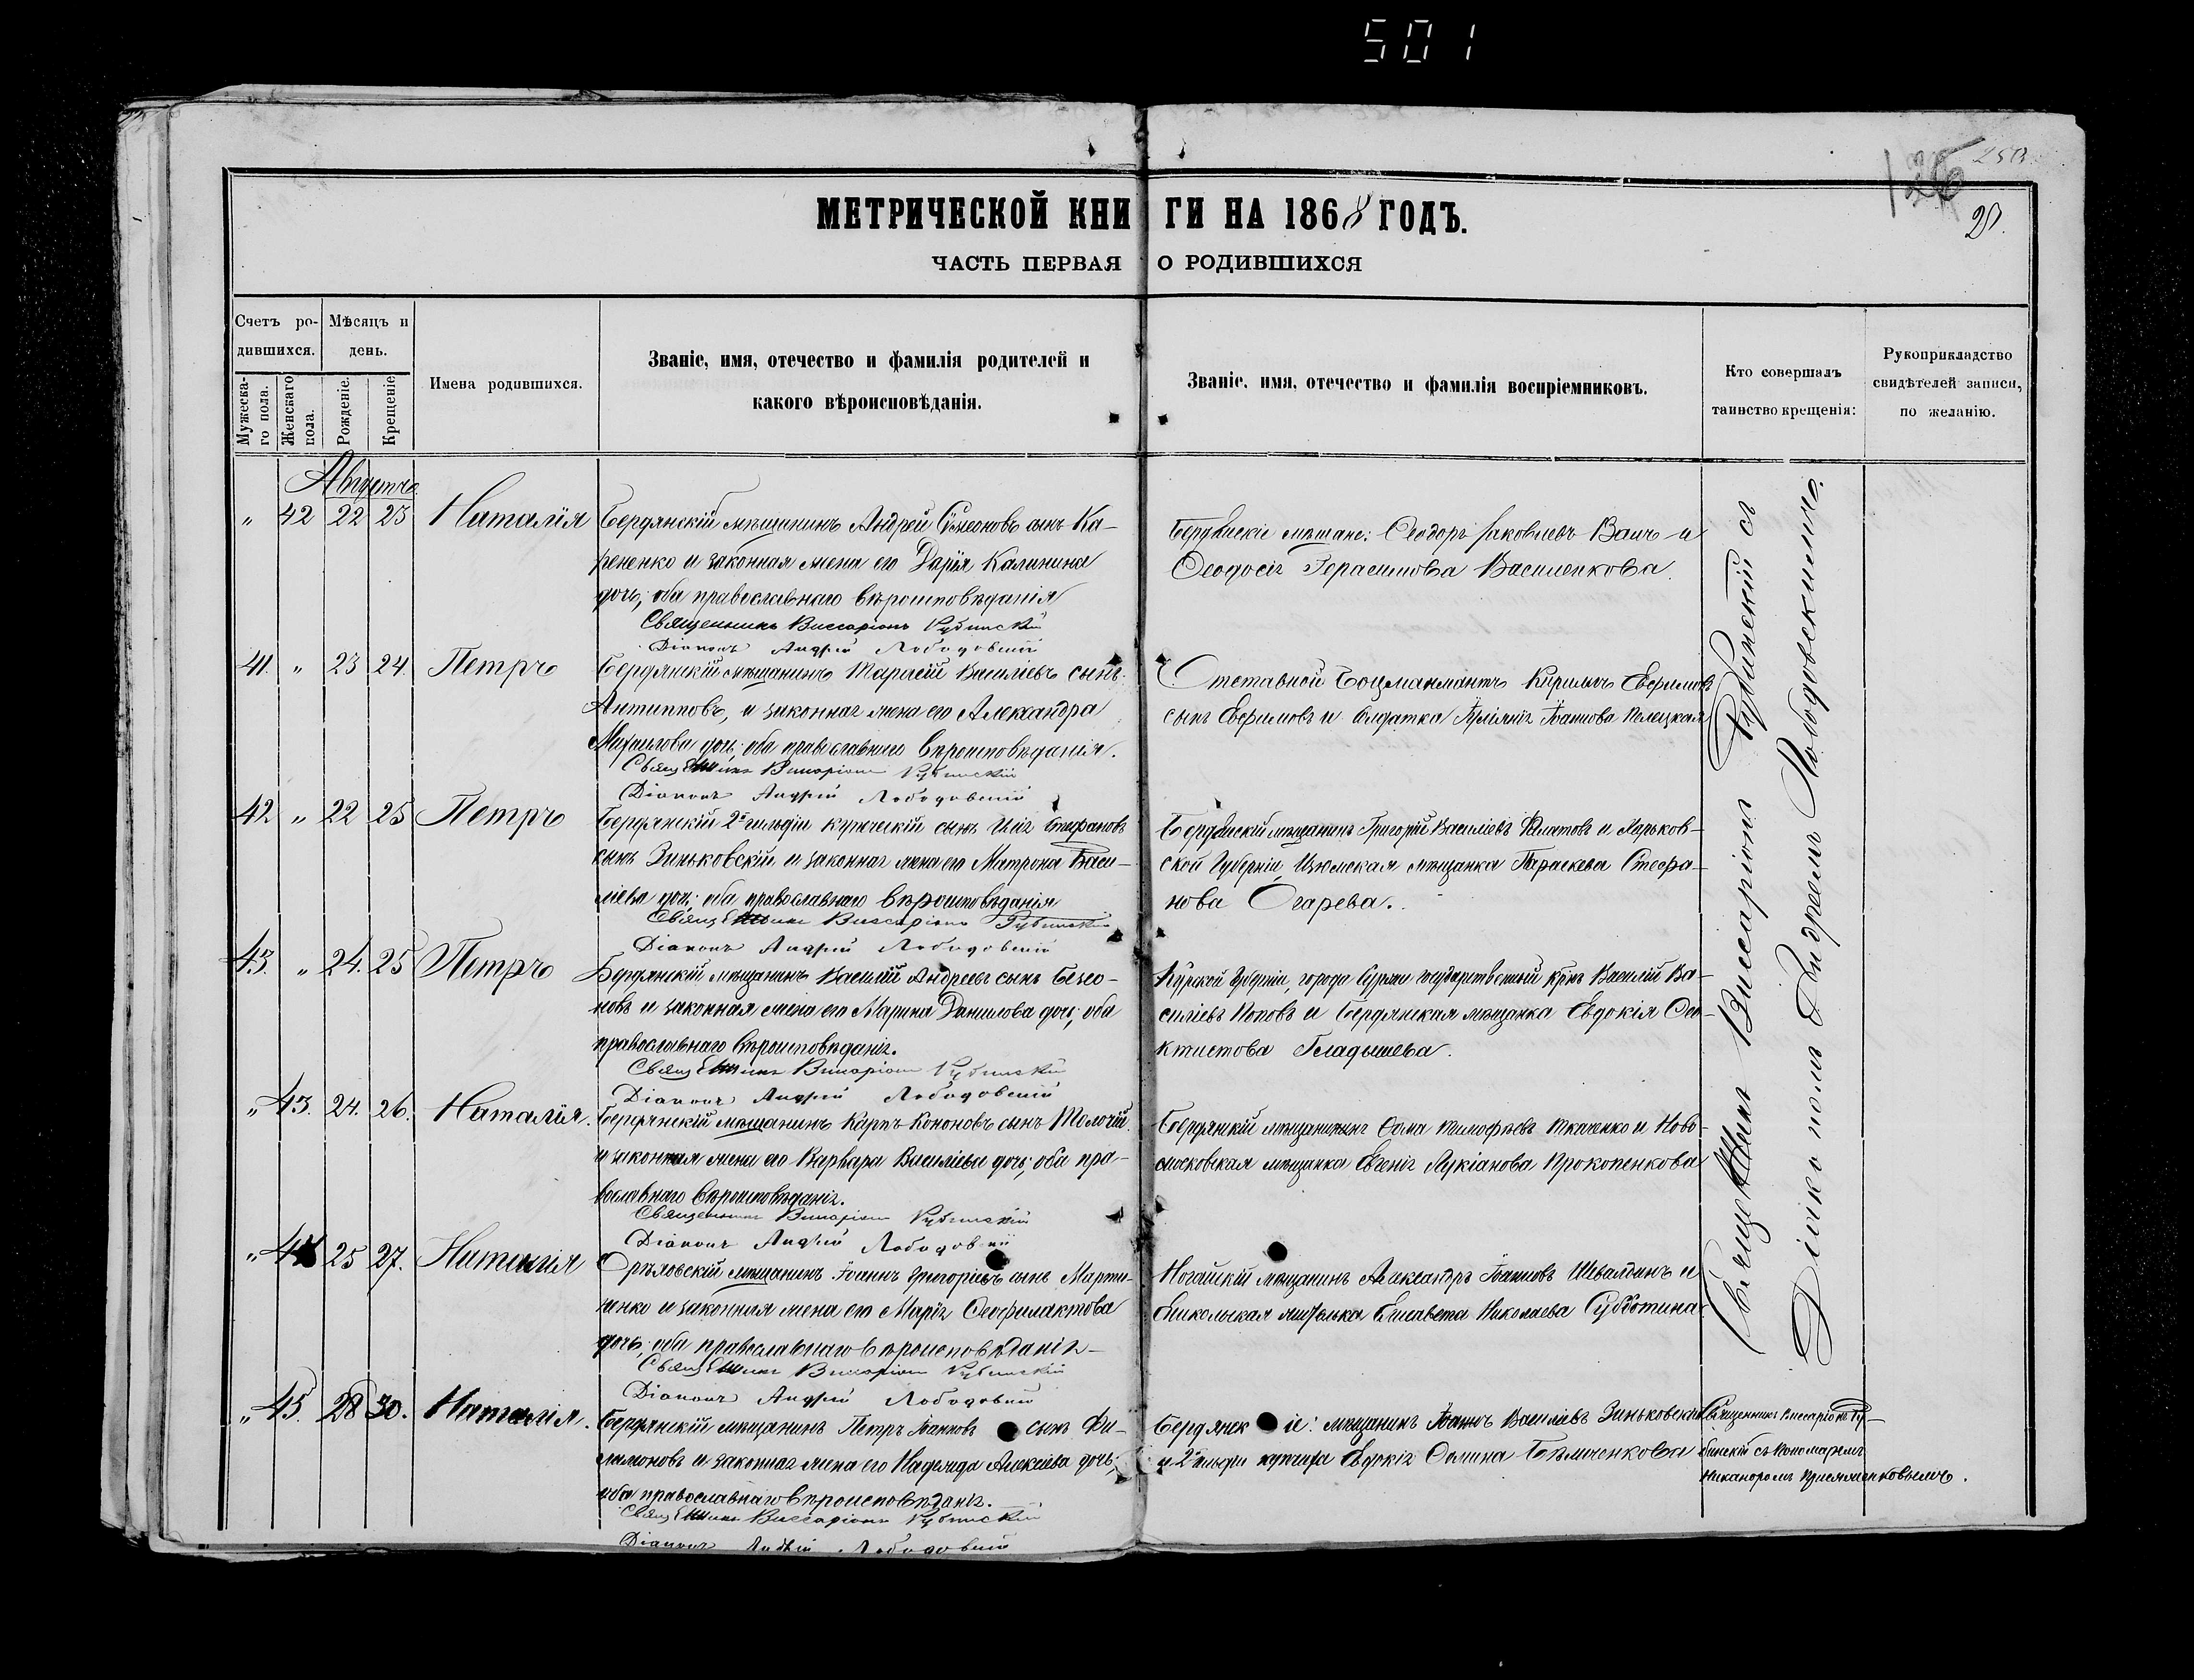 501
126
250
МЕТРИЧЕСКОЙ КНИГИ НА 1868 ГОДЪ.
ЧАСТЬ ПЕРВАЯ О РОДИВШИХСЯ
Счетъ ро-
дившихся.
Мужеска-
го пола.
Женскаго
пола.
Мѣсяцъ и
день.
Рожденіе.
Крещеніе
Имена родившихся.
Званіе, имя, отечество и фамилія родителей и
какого вѣроисповѣданія.
Званіе, имя, отечество и фамилія воспріемниковъ.
Кто совершалъ
таинство крещенія:
Рукоприкладство
свидѣтелей записи,
по желанію.
Августъ
" 42 22 23 Наталія
Бердянскій мѣщанинъ Андрей Сѵмеоновъ сынъ Ка-
рененко и законная жена его Дарія Калинина
дочь; оба православнаго вѣроисповѣданія
Священникъ Виссаріонъ Рубинскій
Діаконъ Андрей Лободовскій
Бердянскіе мѣщане: Ѳеодоръ Іаковлевъ и
Ѳеодосія Герасимова Василенкова.
41. " 23 24. Петръ
Бердянскій мѣщанинъ Тарасій Василіевъ сынъ
Антиповъ, и законная жена его Александра
Михаилова дочь; оба православнаго вѣроисповѣданія.
Священникъ Виссаріонъ Рубинскій
Діаконъ Андрей Лободовскій
Отставной Боцманматъ Кирилъ Евфимовъ
сынъ Евфимовъ и солдатка Іуліанія Іоаннова
42 " 22 25 Петръ
Бердянскій 2й гильдіи купеческій сынъ Илія Стефановъ
сынъ Зиньковскій и законная жена его Матрона Васи-
ліева дочь; оба православнаго вѣроисповѣданія
Священникъ Виссаріонъ Рубинскій
Діаконъ Андрей Лободовскій
Бердянскій мѣщанинъ Григорій Василіевъ и Харьков-
ской Губерніи, Изюмская мѣщанка Параскева Стефа-
нова Огарева.
43. " 24. 25 Петръ
Бердянскій мѣщанинъ Василій Андреевъ сынъ Безсо-
новъ и законная жена его Марина Данилова дочь; оба
православнаго вѣроисповѣданія.
Священникъ Виссаріонъ Рубинскій
Діаконъ Андрей Лободовскій
Курской Губерніи, города Суджи государственный крнъ Василій Ва-
силіевъ Поповъ и Бердянская мѣщанка Евдокія Ѳео-
ктистова Гладышева.
" 43. 24. 26. Наталія.
Бердянскій мѣщанинъ Карпъ Кононовъ сынъ Толочій
и законная жена его Варвара Василіева дочь; оба пра-
вославнаго вѣроисповѣданія.
Священникъ Виссаріонъ Рубинскій
Діаконъ Андрей Лободовскій
Бердянскій мѣщанинъ Ѳома Тимофѣевъ Ткаченко и Ново-
московская мѣщанка Евгенія Лукіанова Прокопенкова
" 44 25 27. Наталія
Орѣховскій мѣщанинъ Іоаннъ Григоріевъ сынъ Марти-
ненко и законная жена его Марія Ѳеофилактова
дочь; оба православнаго вѣроисповѣданія
Священникъ Виссаріонъ Рубинскій
Діаконъ Андрей Лободовскій
Ногайскій мѣщанинъ Александръ Іоанновъ и
Елисавета Николаева Субботина.
" 45. 28 30. Наталія.
Бердянскій мѣщанинъ Петръ Іоанновъ сынъ Фи-
лимоновъ и законная жена его Надежда Алексіева дочь;
оба православнаго вѣроисповѣданія.
Священникъ Виссаріонъ Рубинскій
Діаконъ Андрей Лободовскій
Бердянскіе: мѣщанинъ Іоаннъ Василіевъ Зиньковскій
и 2й гильдіи купчиха Евдокія Ѳомина Бѣличенкова
Священникъ Виссаріонъ Рубинскій съ
Діакономъ Андреемъ Лободовскимъ.
Священникъ Виссаріонъ Ру-
бинскій съ Пономаремъ
Никаноромъ